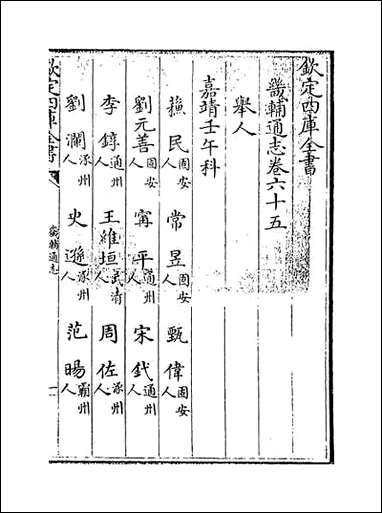 欽定四庫全書
畿輔通志卷六十五
舉人
嘉靖壬午科
蘓民 常昱固安人 甄偉固安人
劉元善固安人 甯平通州人 宋鈛通州人
李錞通州人 王維垣武清人 周佐涿州人
劉瀾涿州人 史遜涿州人 范暘霸州人
欽定四庫全書 畿輔通志 一